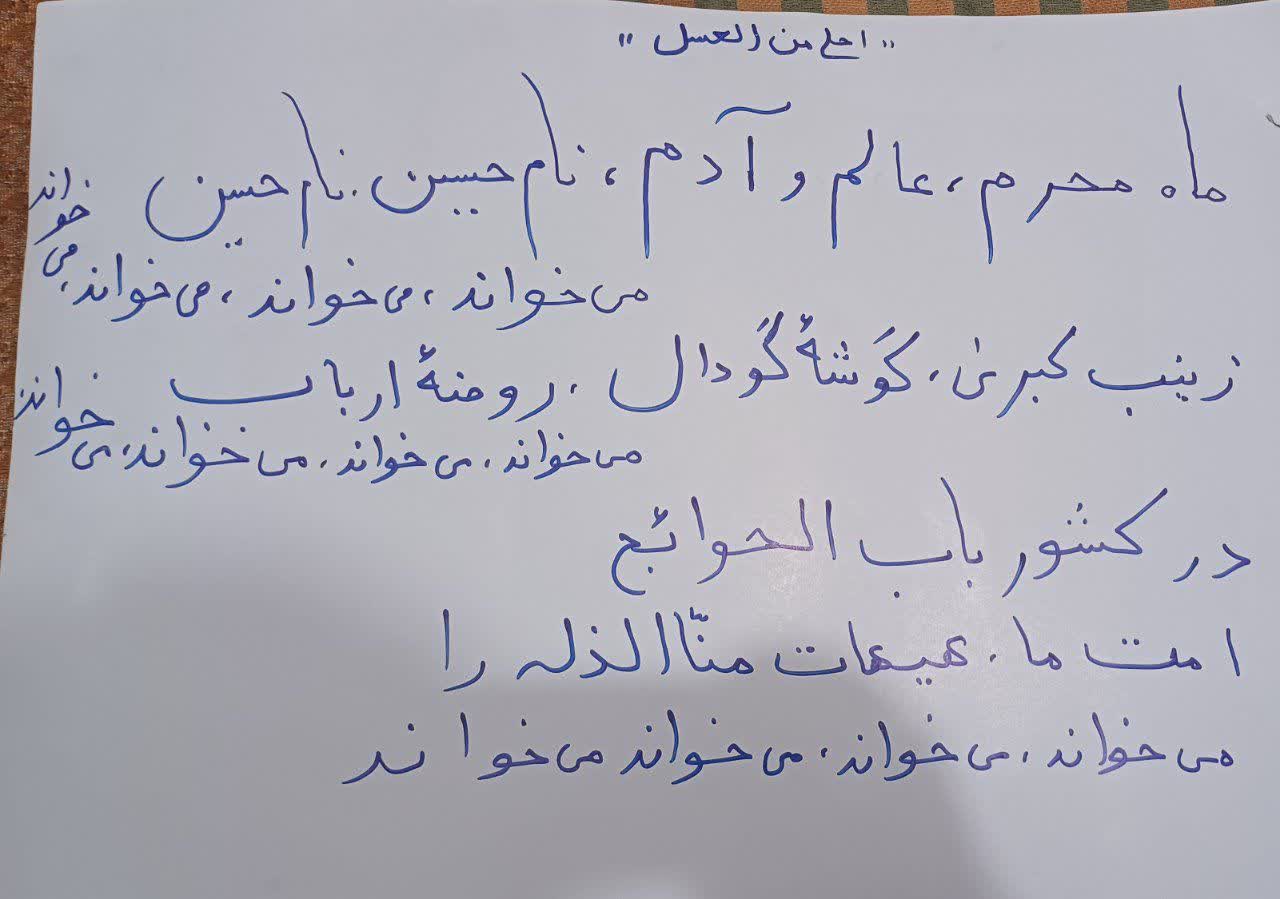 "احلی من العسل"
ماه محرم، عالم و آدم، نام حسین. نام حسن
می‌خواند، می‌خواند، می‌خواند، می‌خواند
زینب کبریٰ، گوشهٔ گودال، روضهٔ ارباب
می‌خواند، می‌خواند، می‌خواند، می‌خواند
در کشور باب الحوائج
امت ما، هیهات منّا الذله را
می‌خواند، می‌خواند، می‌خواند می‌خواند